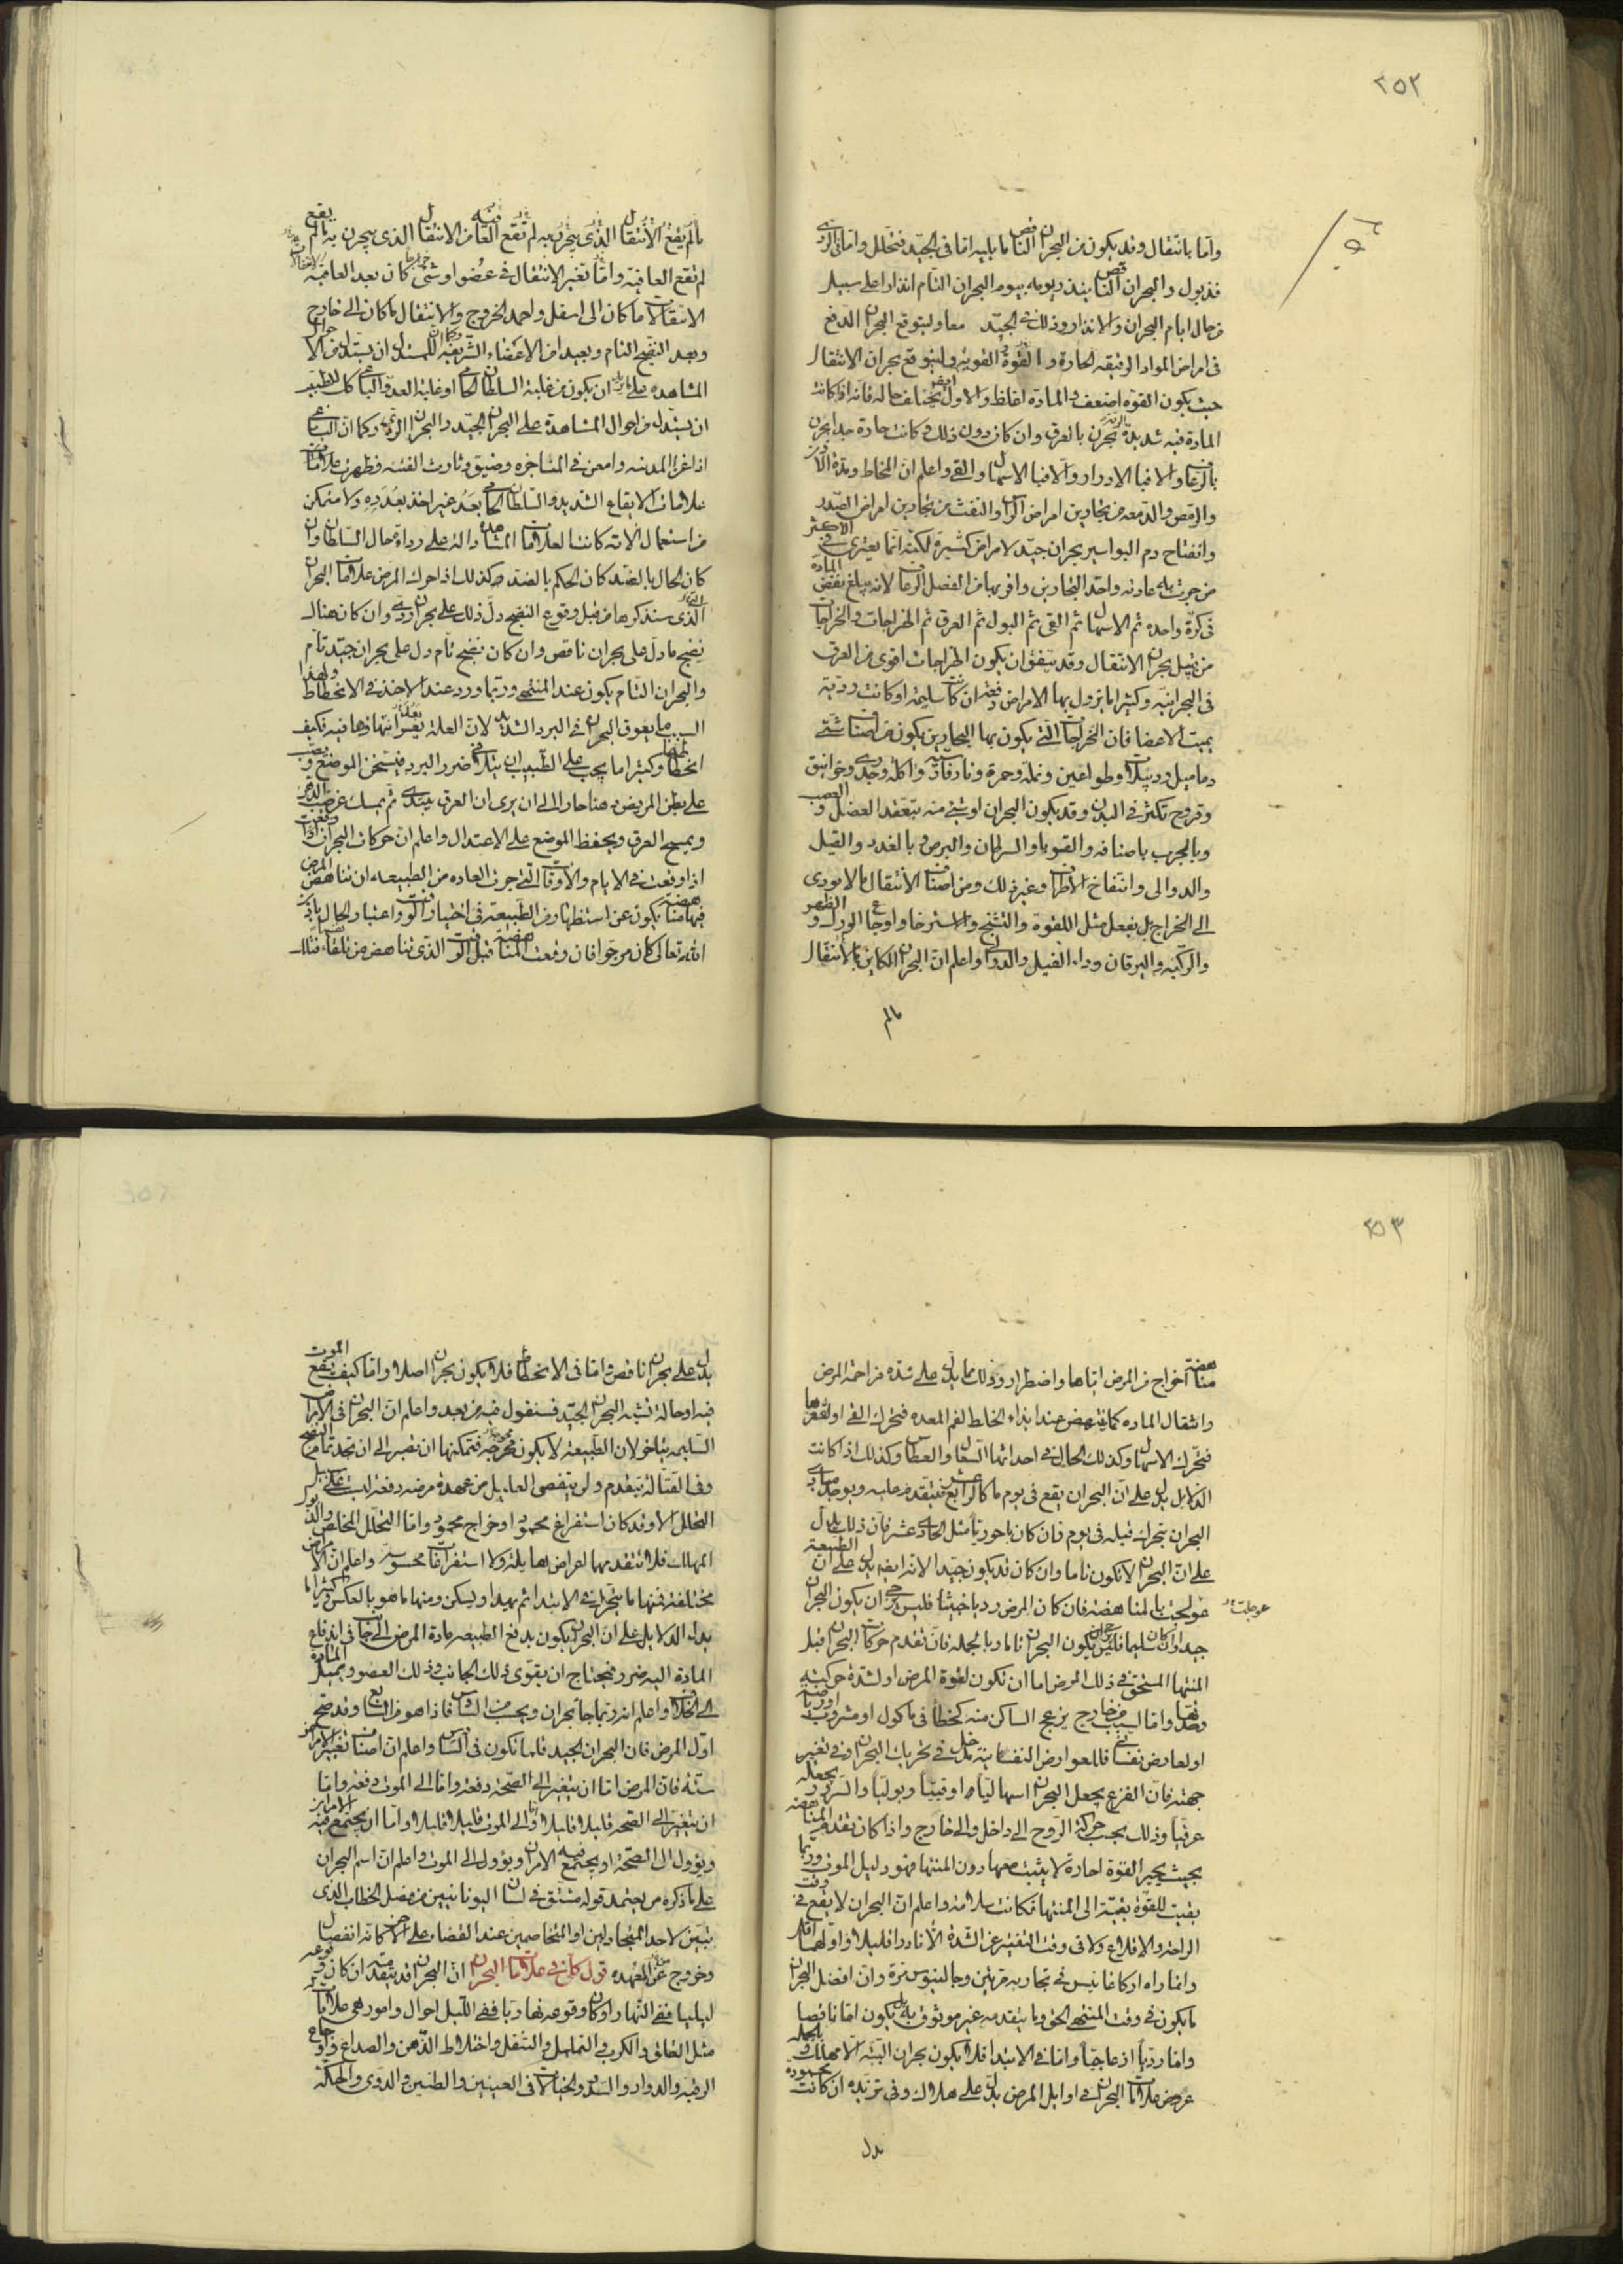 ٢٥٢
واما بانتقال وقد يكون من البحران الناقص ما يليه اما في الجيد فتحلل واما في الردي
فذبول والبحران الناقص ينذر يومه بيوم البحران التام انذارا على سبيل
من حال ايام البحران والانذار وذلك في الجيد معا وليتوقع البحران الدفع
في امراض المواد الرقيقه الحارة والقوة القوية وليتوقع بحران الانتقال
حيث يكون القوه اضعف والمادة اغلظ والاول يختلف حاله فانه اذا كانت
المادة فيه شديدة بحرن بالعرق وان كان دون ذلك وكانت حادة جدا بحرن
بالرعاف والا فبالادرار والا فبالاسهال والقي واعلم ان المخاط ومدة الاذن
والرمص والدمعه من بحارين امراض الراس والنفث من بحارين امراض الصدر
وانفتاح دم البواسير بحران جيد لامراض كثيرة لكنه انما يعتري في الاكثر
من جرت به عادته واحد البحارين واقربها من الفصل الرعاف لانه يبلغ نفض المادة
في كرة واحده ثم الاسهال ثم القي ثم البول ثم العرق ثم الخراجات والخراجات
من قبيل بحران الانتقال وقد يتفق ان يكون الخراجات اقوى من العرق
في البحرانيه وكثيرا ما يزول بها الامراض دفعة ان كانت سليمه او كانت ردية
يميت الاعضا فان الخراجات التي يكون بها البحارين يكون من اصناف شتى
دماميل ودبيلات وطواعين ونملة وحمرة ونار فارسية واكلة وجدري وخوانيق
وقروح تكثر في البدن وقد يكون البحران او شي منه بتعقد العضل والعصب
وبالجرب باصنافه والقوبا والسرطان والبرص وبالغدد والفيل
والدوالى وانتفاخ الاطراف وغير ذلك ومن اصناف الانتقال ما لا يودى
الى الخراج بل يفعل مثل اللقوة والتشنج والاسترخا واوجاع الورك والظهر
والركبه واليرقان وداء الفيل والدوالى واعلم ان البحران الكاين بالانتقال
مالم
مالم يقع الانتقال الذي يبحرن به لم تقع العافية من الانتقال الذي يبحرن به مالم يقع
لم تقع العافية واما تغير الانتقال في عضو او شي كان بعد العافيه
الانتقالات ما كان الى اسفل واحمد الخروج والانتقال ما كان الى خارج
وبعد النضج التام وبعيدا من الاعضاء الشريفه وكما ان للمستدل ان يستدل من الاحوال
المشاهده على ما يريد ان يكون من غلبة السلطان الحامي او غلبة العدو الباغي كذلك للطبيب
ان يستدل من احوال المشاهدة على البحران الجيد والبحران الردي وكما ان الباغي
اذا غزا المدينه وامعن في المناجزه وضيق وثارت الفتنه وظهرت علامات
علامات الايقاع الشديد والسلطان الحامي بعد غير اخذ بعدده ولا متمكن
من استعمال الاته كانت العلامات المشاهده دالة على رداءة حال السلطان وان
كان الحال بالضد كان الحكم بالضد وكذلك اذا حرك المرض علامات البحران
الذي سنذكرها من قبل وقوع النضج دل ذلك على بحران ردي وان كان هناك
نضج ما دل على بحران ناقص وان كان نضج تام دل على بحران جيد تام
والبحران التام يكون عند المنتهى وربما ورد عند الاخذ في الانحطاط ولهذا
السبب ما يعوق البحران في البرد الشديد لان العلة يعسر انتهاؤها فيه فكيف
انحطاطها وكثيرا ما يجب على الطبيب ان يتلافى ضرر البرد فيسخن الموضع ويصب
على بطن المريض دهنا حارا الى ان يرى ان العرق يبتدي ثم يمسك عن صب الدهن
ويمسح العرق ويحفظ الموضع على الاعتدال واعلم ان حركات البحران اذا وقعت
اذا وقعت في الايام والاوقات التي جرت العاده من الطبيعه ان تناهض المرض
فيها مناهضة يكون عن استظهار من الطبيعة في اختيار الوقت واعتبار الحال باذن
الله تعالى كان مرجوا فان وقعت المناهضة قبل الوقت الذي تناهض من تلقاء فتلك
٢٥٣
مناهضة اخراج من المرض اياها واضطرار وذلك مما يدل على شدة مزاحمة المرض
واثقال الماده كما يتهض عند ايذاء الخلط لفم المعده فتحرك القي او لقعرها
فتحرك الاسهال وكذلك الحال في احداثها السعال والعطاس وكذلك اذا كانت
الدلايل تدل على ان البحران يقع في يوم ما كالرابع عشر فتتقدم عليه ويوجد مبادي
البحران تتحرك قبله في يوم فان كان باحوريا مثل الحادي عشر فان ذلك يدل
على ان البحران لا يكون تاما وان كان قد يكون جيدا لانه ايضا يدل على ان الطبيعة
عولجت بالمناهضة فان كان المرض رديا خبيثا فليس يرجى ان يكون البحران
عوجلت
جيدا وان كان سليما فيكون البحران ناقصا وبالجمله فان تقدم حركات البحران قبل
المنتهى المستحق في ذلك المرض اما ان تكون لقوة المرض او لشدة حركته
وحدتها واما لسبب من خارج يزعج الساكن منه كخطا في ماكول او مشروب
او لعارض نفساني فللعوارض النفسانية مدخل في تحريك البحران وفي تغيير
جهته فان الفزع يجعل البحران اسهاليا او قيئيا وبوليا والسرور يجعله
عرقيا وذلك بحسب حركة الروح الى داخل والى خارج واذا كان تقدم المناهضة
بحيث يحير القوة احارة لا يثبت معها دون المنتها فهو دليل الموت وربما
بقيت للقوة بقية الى المنتها فكانت سلامة واعلم ان البحران لا يقع في وقت
الراحة والاقلاع ولا في وقت التفتير عن الشدة الا نادرا قليلا
وانما راه اركاغانيس في تجاربه مرتين وجالينوس مرة وان افضل البحران
ما يكون في وقت المنتهى الحق وما يتقدمه غير موثوق به بل يكون اما ناقصا
واما رديا ازعاجيا واما في الابتدا فلا يكون بحران البتة الا مهلك وبالجمله
عروض علامات البحران في اوايل المرض يدل على هلاك وفي تزيده ان كانت محمودة
يدل
يدل على بحران ناقص واما في الانحطاط فلا يكون بحران اصلا واما كيف يقع الموت
فيه او حاله تشبه البحران الجيد فسنقول فيه من بعد واعلم ان البحران في الامراض
السليمه يتاخر لان الطبيعه لا يكون محرجة فيمكنها ان تصبر الى ان تجد تمام النضج
وفي القتالة يتقدم ولن يتفصى العليل من عهدة مرضه دفعة ليست على سبيل
التحلل الا وقد كان استفراغ محمود او خراج محمود واما التحلل المخلص والذبول
المهلك فلا تتقدمهما اعراض هايلة ولا استفراغات محسوسة واعلم ان الامراض
مختلفه فمنها ما يتحرك في الابتدا ثم يهدا ويسكن ومنها ما هو بالعكس وكثيرا ما
يدل الدلايل على ان البحران يكون بدفع الطبيعه مادة المرض الى جانب في اندفاع
المادة اليه ضرر فيحتاج ان يقوى ذلك الجانب وذلك العضو ويميل المادة
الى الخلاف واعلم انه ربما جا بحران وبحسب في السادس فاذا هو من السابع وقد صح
اول المرض فان البحران الجيد قلما يكون في السادس واعلم ان اصناف تغير الامراض
ستة فان المرض اما ان يتغير الى الصحة دفعة واما الى الموت دفعة واما
ان يتغير الى الصحة قليلا قليلا واما الى الموت قليلا قليلا واما ان يجتمع فيه الامران
ويؤول الى الصحة او يجتمع فيه الامران ويؤول الى الموت واعلم ان اسم البحران
على ما ذكره من يعتمد قوله مشتق في لسان اليونانيين من فصل الخطاب الذي
يتبين لاحد المتجادلين او المتخاصمين عند القضاة على الاخر كانه انفصال
وخروج عن العهده قول كلي في علامات البحران ان البحران قد يتقدمه ان كان وقوعه
ليليا ففي النهار او كان وقوعه نهاريا ففي الليل احوال وامور هي علامات له
مثل القلق والكرب والتململ والتنقل واختلاط الذهن والصداع واوجاع
الرقبه والدوار والسدر والخيالات في العينين والطنين والدوى والحكة